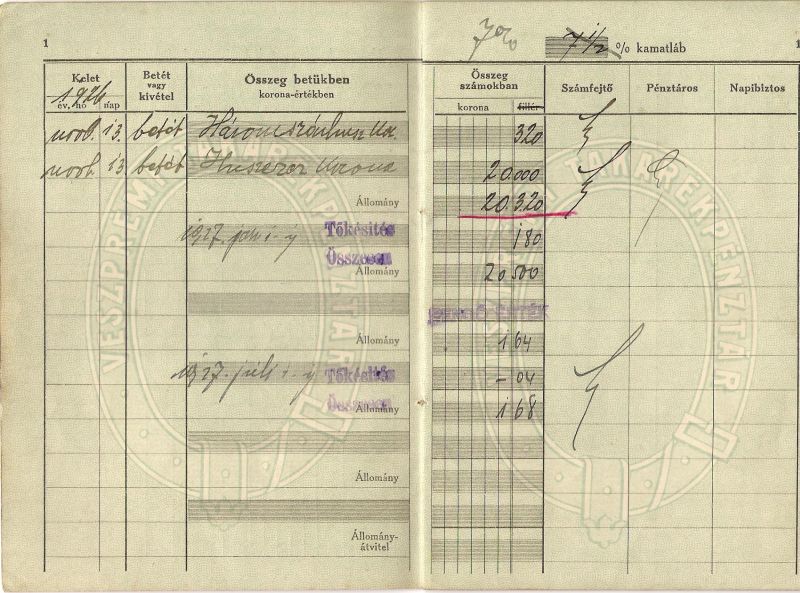 1
7%
7 1/2 % kamatláb
1
Kelet
1926
év, hó nap
Betét
vagy
kivétel
Összeg betükben
korona-értékben
Összeg
számokban
korona fillér
Számfejtő
Pénztáros
Napibiztos
13. betét Háromszázhusz Kor. 320
13 betét Huszezer Korona 20.000
Állomány 20.320
1927. jan. 1-j Tőkésítés 180
Összesen
Állomány 20 500
PENGŐ ÉRTÉK
Állomány 1 64
1927. juli 1-j Tőkésítés - 04
Összesen
Állomány 1 68
Állomány
Állomány-
átvitel
VESZPRÉM
TAKARÉKPÉNZTÁR